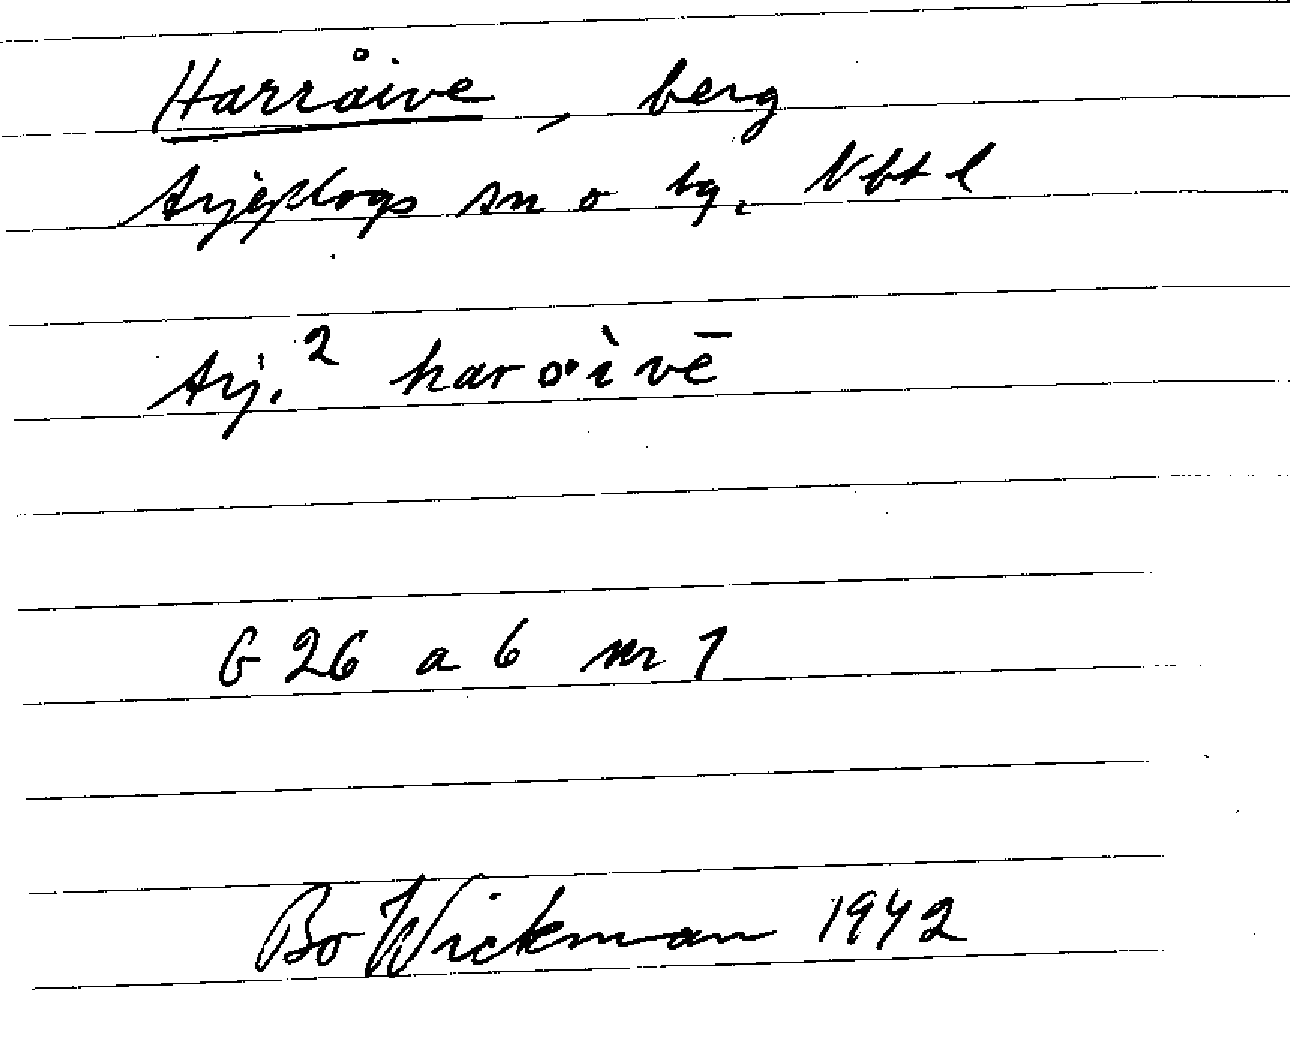 Harråive, berg
Arjeplogs sn o tg. Nbt l
Arj.² har o·ì vē
G 26 a 6 nr 1
Bo Wickman 1942